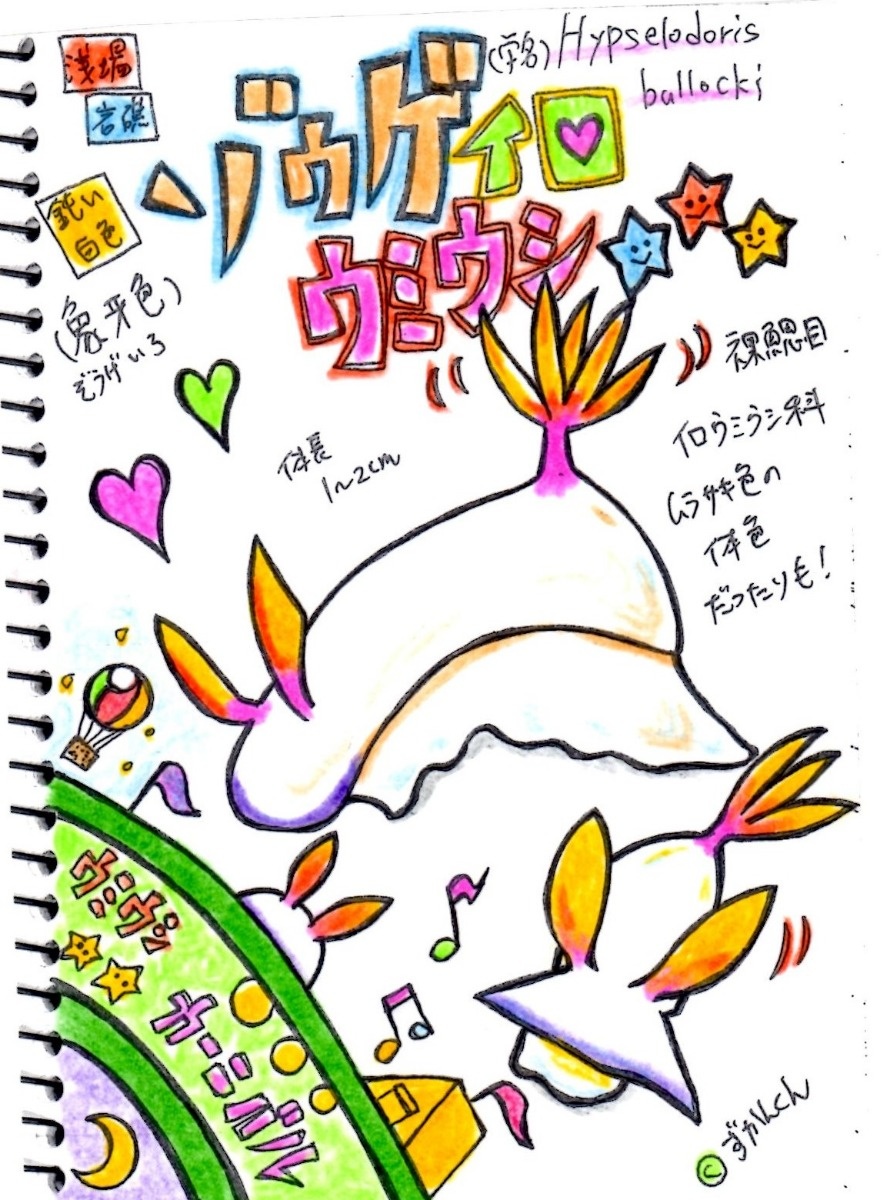 浅場
岩礁
(学名) Hypselodoris
bullocki
ゾウゲイロ
ウミウシ
鈍い
白色
(象牙色)
ぞうげいろ
裸鰓目
イロウミウシ科
ムラサキ色の
体色
だったりも!
体長
1~2cm
ウミウシ
カーニバル
©ずかんくん